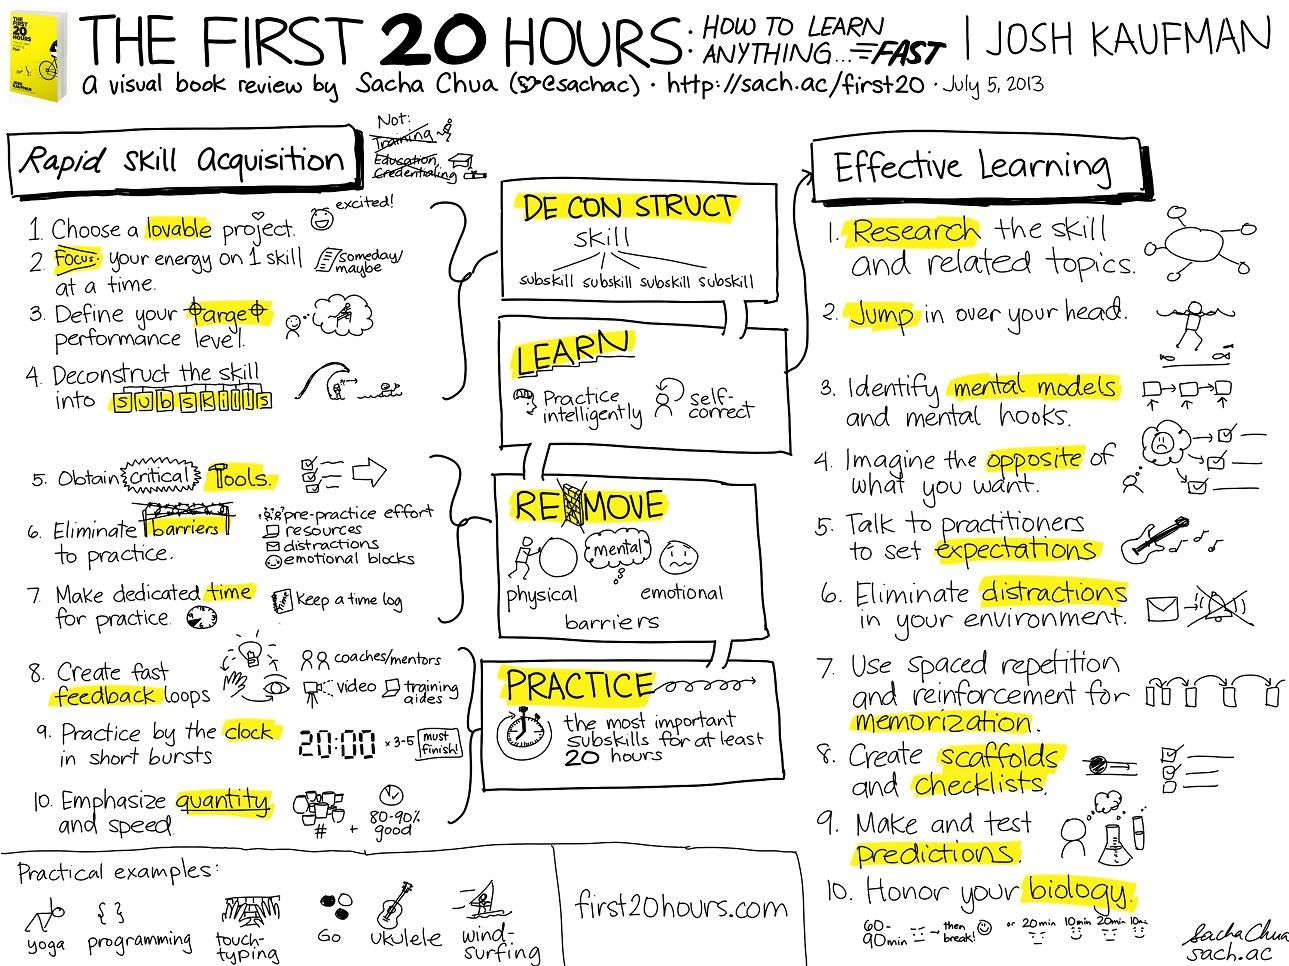 THE FIRST 20 HOURS: HOW TO LEARN ANYTHING... FAST | JOSH KAUFMAN
THE FIRST 20 HOURS
JOSH KAUFMAN
a visual book review by Sacha Chua (@sachac) · http://sach.ac/first20 · July 5, 2013
Rapid Skill Acquisition
Not:
Training
Education
Credentialing
1. Choose a lovable project.
excited!
2. Focus your energy on 1 skill
at a time.
someday/
maybe
3. Define your target
performance level.
4. Deconstruct the skill
into subskills
5. Obtain critical Tools.
6. Eliminate barriers
to practice.
pre-practice effort
resources
distractions
emotional blocks
7. Make dedicated time
for practice.
keep a time log
8. Create fast
feedback loops
coaches/mentors
video
training
aides
9. Practice by the clock
in short bursts
20:00 x 3-5 must
finish!
10. Emphasize quantity
and speed.
# + 80-90%
good
DECONSTRUCT
skill
subskill subskill subskill subskill
LEARN
Practice
intelligently
self-
correct
REMOVE
physical
mental
emotional
barriers
PRACTICE
the most important
subskills for at least
20 hours
Effective Learning
1. Research the skill
and related topics.
2. Jump in over your head.
3. Identify mental models
and mental hooks.
4. Imagine the opposite of
what you want.
5. Talk to practitioners
to set expectations
6. Eliminate distractions
in your environment.
7. Use spaced repetition
and reinforcement for
memorization.
8. Create scaffolds
and checklists.
9. Make and test
predictions.
10. Honor your biology.
60-
90min → then
break!
or 20min 10min 20min 10min
Practical examples:
yoga
{ }
programming
touch-
typing
Go
ukulele
wind-
surfing
first20hours.com
Sacha Chua
sach.ac